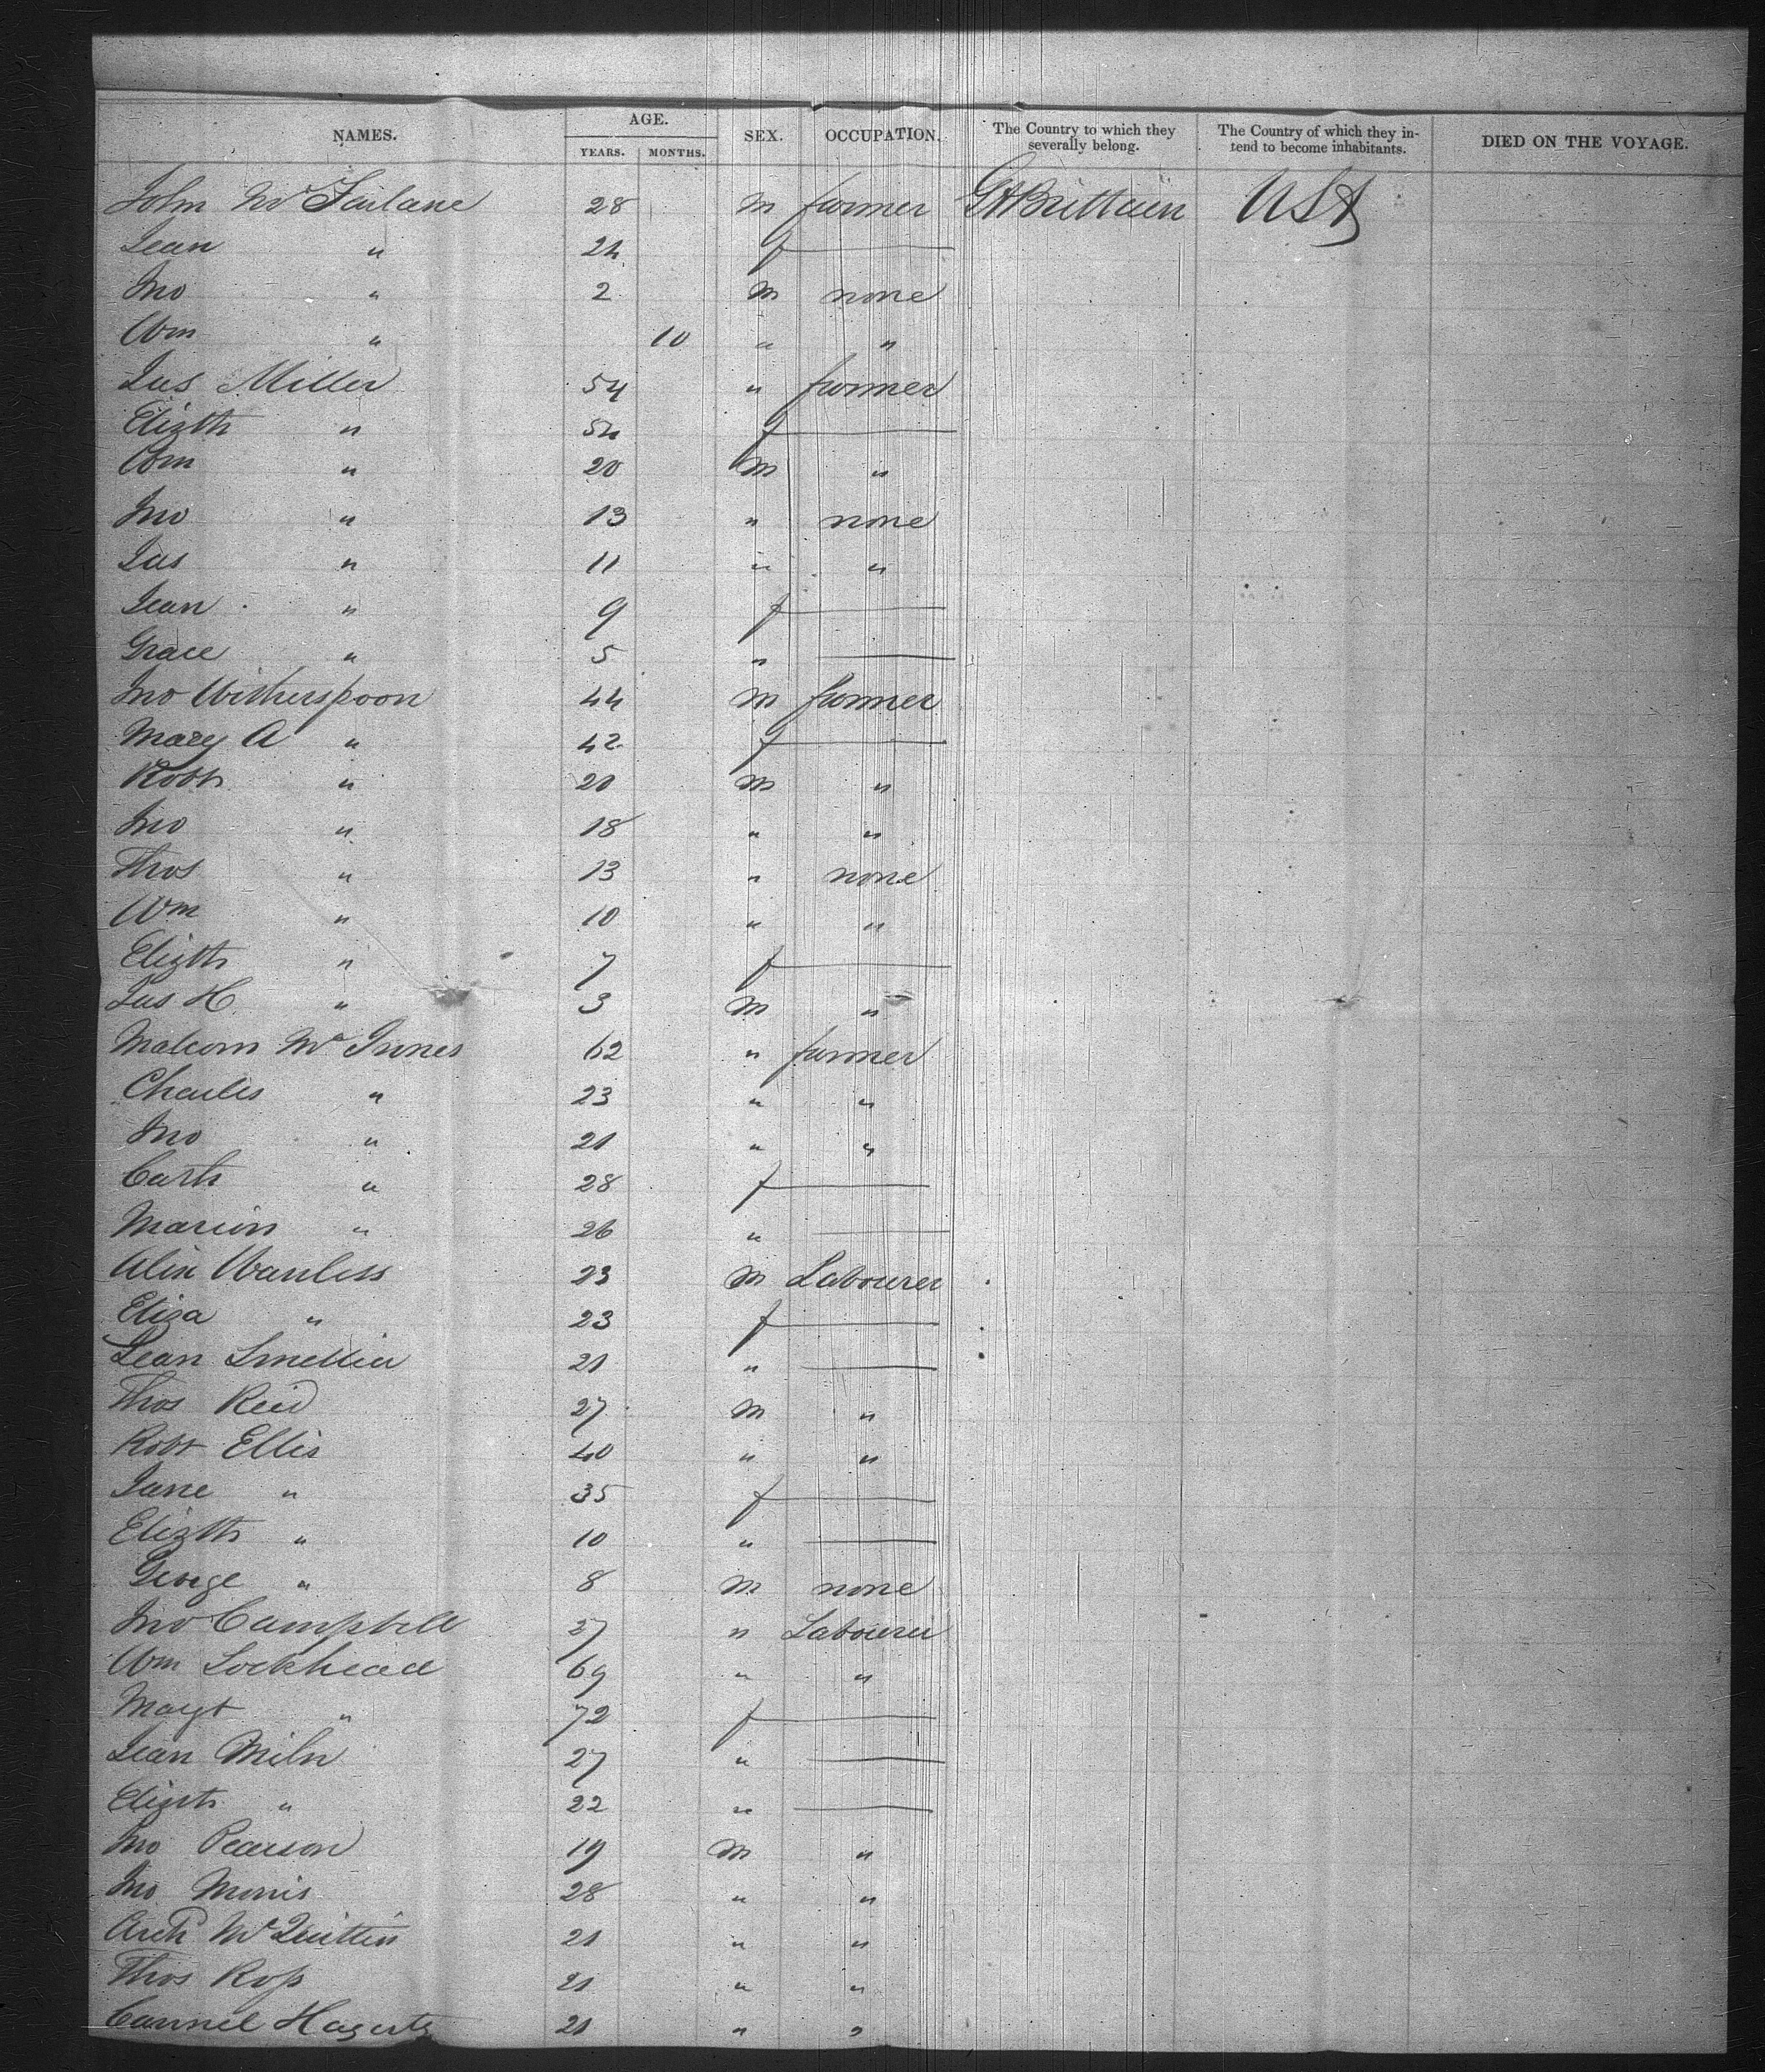 NAMES. AGE. SEX. OCCUPATION. The Country to which they severally belong. The Country of which they intend to become inhabitants. DIED ON THE VOYAGE.
YEARS. MONTHS.
John Mc Farlane 28 m farmer Gt Brittain USA
Jean " 24 f —
Jno " 2 m none
Wm " 10 " "
Jas Miller 54 " farmer
Elizth " 54 f —
Wm " 20 m "
Jno " 13 " none
Jas " 11 " "
Jean " 9 f —
Grace " 5 " —
Jno Witherspoon 44 m farmer
Mary A " 42 f —
Robt " 20 m "
Jno " 18 " "
Thos " 13 " none
Wm " 10 " "
Elizth " 7 f —
Jas H " 3 m "
Malcom Mc Innes 62 " farmer
Charles " 23 " "
Jno " 21 " "
Cath " 28 f —
Marion " 26 " —
Alex Wanless 23 m Labourer
Eliza " 23 f —
Jean Smellia 21 " —
Thos Reid 27 m "
Robt Ellis 40 " "
Jane " 35 f —
Elizth " 10 " —
George " 8 m none
Jno Campbell 37 " Labourer
Wm Lockhead 69 " "
Magt " 72 f —
Jean Miln 27 " —
Elizth " 22 " —
Jno Pearson 19 m "
Jno Morris 28 " "
Archd Mc Quittin 21 " "
Thos Ross 21 " "
Hagerty 21 " "